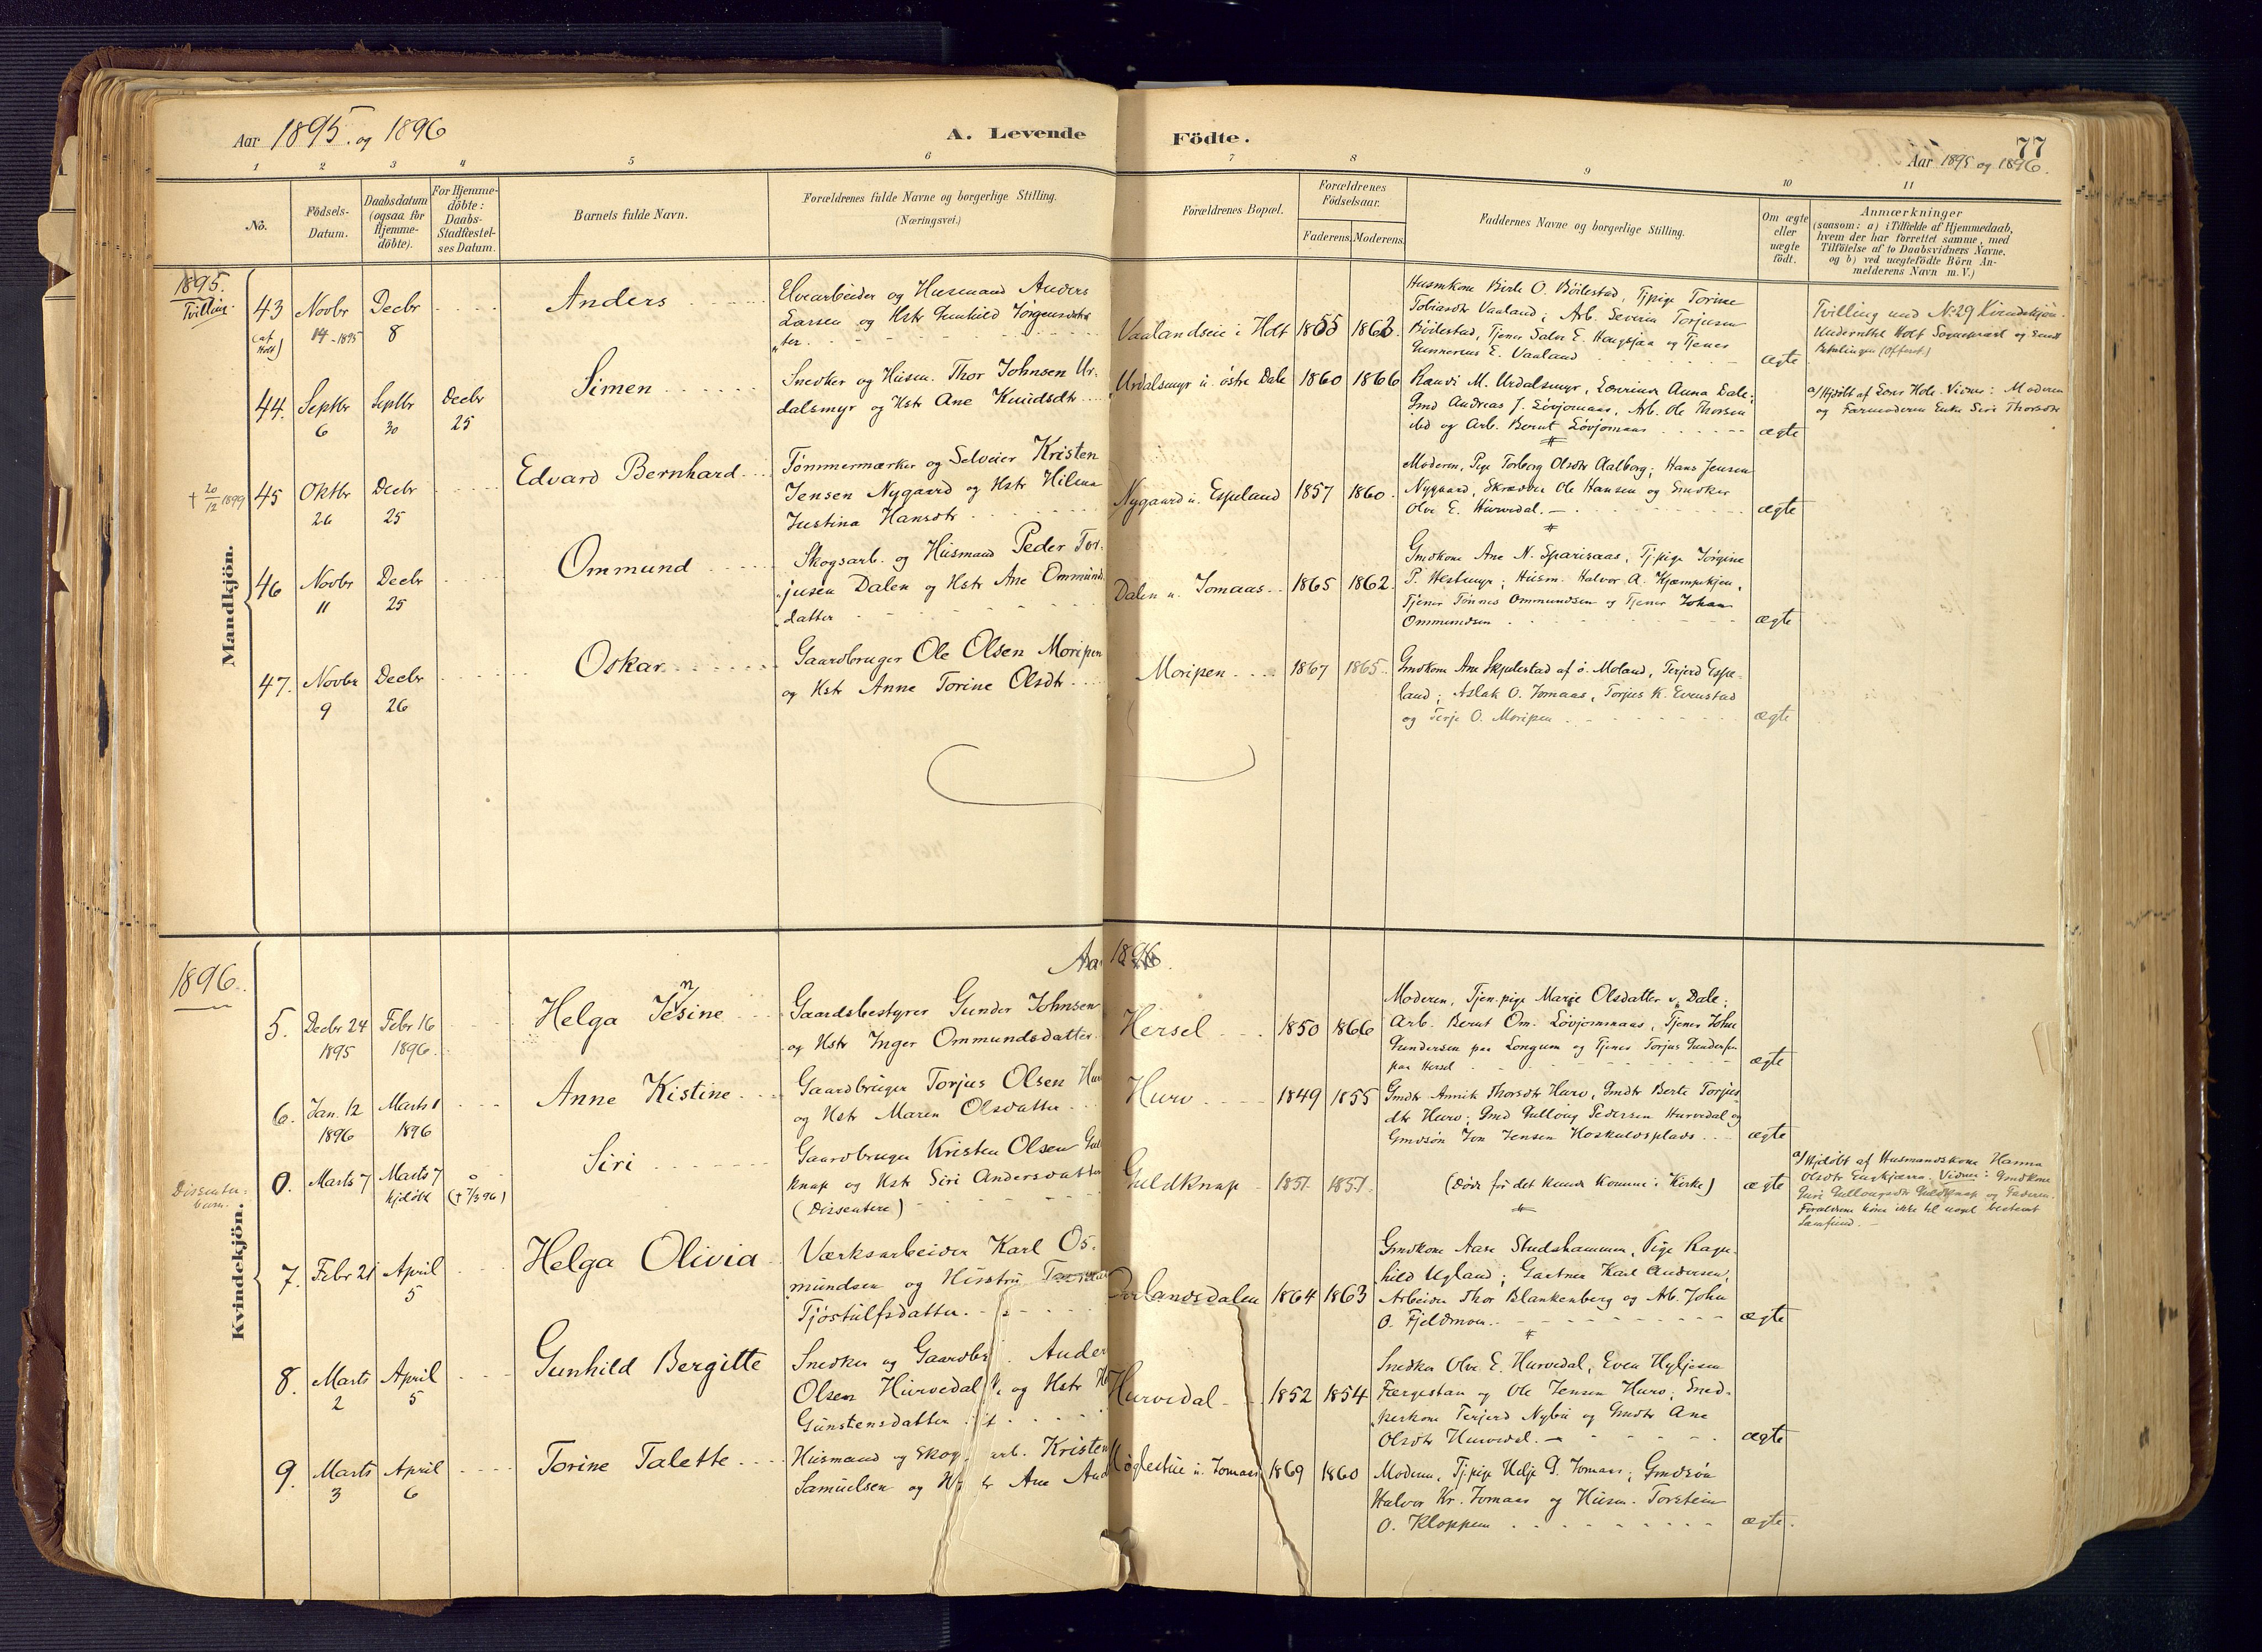 Aar 1895. og 1896
A. Levende Födte.
77
Aar 1895 og 1896.
1 2 3 4 5 6 7 8 9 10 11
No.
Födsels-Datum.
Daabsdatum (ogsaa for Hjemme-döbte).
For Hjemme-döbte: Daabs-Stadfæstel-ses Datum.
Barnets fulde Navn.
Forældrenes fulde Navne og borgerlige Stilling. (Næringsvei.)
Forældrenes Bopæl.
Forældrenes Födselsaar.
Faderens. Moderens.
Faddernes Navne og borgerlige Stilling.
Om ægte eller uægte født.
Anmærkninger
(saasom: a) i Tilfælde af Hjemmedaab,
hvem der har forrettet samme, med
Tilföielse af to Daabsvidners Navne,
og b) ved uægtefödte Börn An-
melderens Navn m. V.)
Mandkjön.
1895.
Tvilling.
43 (af Holt)
Novbr 14-1895
Decbr 8
Anders
Elvearbeider og Husmand Anders
Larsen og Hstr Gunhild Jörgensdat-
ter.
Vaalandseie i Holt
1855 1862
Husmkone Birte O. Böilestad, Tjpige Torine
Tobiasdtr Vaaland; Arb. Severin Torjusen
Böilestad, Tjener Salve E. Haugsjaa og Tjener
Gunnerius E. Vaaland
ægte
Tvilling med No 29 Kvindekjön.
Underrettet Holt Sognepræst og Sendt
Betalingen (Offeret)
44.
Septbr 6
Septbr 30
Decbr 25
Simen
Snedker og Husm. Thor Johnsen Ur-
dalsmyr og Hstr Ane Knudsdtr
Urdalsmyr u. østre Dale
1860 1866
Ranvi M. Urdalsmyr, Lærerinde Anna Dale;
Gmd Andreas J. Lövjomaas, Arb. Ole Thorsen
ibd og Arb. Bernt Lövjomaas
ægte
a) Hjdöbt af Lærer Hole. Vidner: Moderen
og Farmoderen Enke Siri Thorsdtr
† 20/12 1899
45
Oktbr 26
Decbr 25
Edvard Bernhard
Tömmermærker og Selveier Kristen
Jensen Nygaard og Hstr Hilma
Justina Hansdtr
Nygaard u. Espeland
1857 1860.
Moderen, Pige Torborg Olsdtr Aalborg; Hans Jensen
Nygaard, Skrædder Ole Hansen og Snedker
Olve E. Hurvedal.
ægte
46
Novbr 11
Decbr 25
Ommund
Skogsarb. og Husmand Peder Tor-
jusen Dalen og Hstr Ane Ommunds-
datter
Dalen u. Jomaas
1865 1862.
Gmdkone Ane N. Sparsaas, Tj.pige Jörgine
P. Westmyr; Husm. Halvor A. Kjæmpekjen,
Tjener Tönnes Ommundsen og Tjener Johan
Ommundsen
ægte
47.
Novbr 9
Decbr 26
Oskar
Gaardbruger Ole Olsen Moripen
og Hstr Anne Torine Olsdtr
Moripen
1867 1865
Gmdkone Ane Skjulestad af ö. Moland, Terjerd Espe-
land; Aslak O. Jomaas, Torjus K. Evenstad
og Terje O. Moripen
ægte
Kvindekjön.
1896.
Aar 1896.
5.
Decbr 24 1895
Febr 16 1896.
Helga Jensine
Gaardsbestyrer Gunder Johnsen
og Hstr Inger Ommundsdatter
Hersel
1850 1866
Moderen, Tjen.pige Marie Olsdatter v. Dale;
Arb. Bernt Om. Lövjommaas, Tjener John
Gundersen paa Longum og Tjener Torjus Gundersen
paa Hersel
ægte
6.
Jan. 12 1896
Marts 1 1896
Anne Kistine
Gaardbruger Torjus Olsen Hurv
og Hstr Maren Olsdatter
Hurv
1849 1855
Gmdtr Annik Thorsdtr Hurv, Gmdtr Berte Torjus-
dtr Hurv; Gmd Gullong Pedersen Hurvedal og
Gmdsön Jon Jensen Hoskuldsplads
ægte
Dissenter-barn.
0.
Marts 7
Marts 7 hjdöbt
0 († 7/3 96)
Siri
Gaardbruger Kristen Olsen Guld-
knap og Hstr Siri Andersdatter
(Dissentere)
Guldknap
1851 1851
(Döde för det kunde komme i Kirke)
ægte
a) Hjdöbt af Husmandskone Hanna
Olsdtr Engkjærra. Vidner: Gmdkone
Guri Gullongsdtr Guldknap og Faderen.
Forældrene höre ikke til noget bestemt
Samfund.
7.
Febr 21
April 5
Helga Olivia
Værksarbeider Karl Os-
mundsen og Hustru
Tjöstulfsdatter
1864 1863
Gmdkone Aase Studshammer, Pige Ragn-
hild Ugland; Gartner Karl Andersen,
Arbeider Thor Blankenberg og Arb. John
O. Fjeldmoen.
ægte
8.
Marts 2
April 5
Gunhild Bergitte
Snedker og Gaardbr. Anders
Olsen Hurvedal og Hstr
Gunstensdatter
Hurvedal
1852 1854
Snedker Olve E. Hurvedal, Even Hyljesen
Færgestan og Ole Jensen Hurv; Sned-
kerkone Terjerd Nybu og Gmdtr Ane
Olsdtr Hurvedal.
ægte
9.
Marts 3
April 6
Torine Talette
Husmand og Skogarb. Kristen
Samuelsen og Hstr Ane
Möglestue u. Jomaas
1869 1860
Moderen, Tj.pige Helje G. Jomaas; Gmdsön
Halvor Kr. Jomaas og Husm. Torstein
O. Kloppen
ægte.